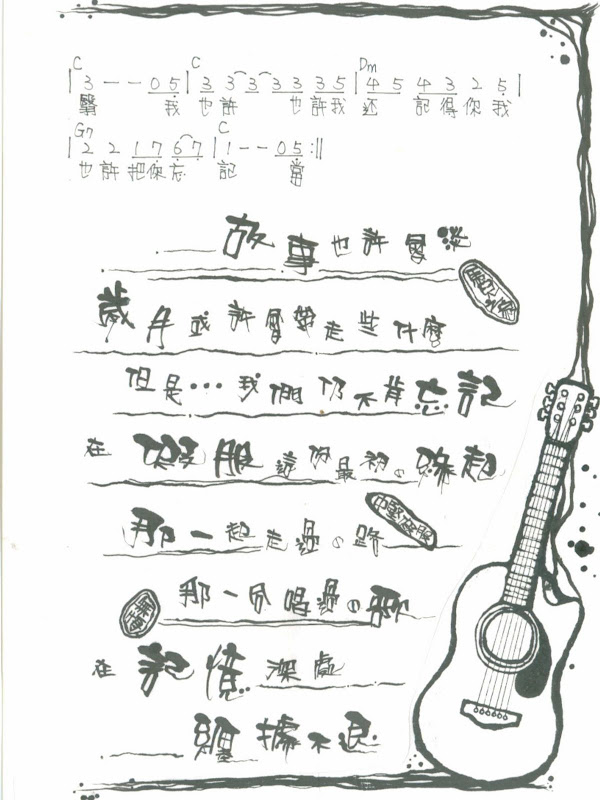 C C Dm
|3 - - 0 5|3 3 3 3 3 3 5|4 5 4 3 2 5|
我 也許 也許我 還 記得你我
G7 C
|2 2 1 7 6 7|1 - - 0 5:||
也許把你忘 記 當
故事也許會淡
歲月或許會帶走些什麼
但是...我們仍不肯忘記
在 這份最初の緣起
那一起走過の路
那一份唱過の
在記憶深處
纏據不退